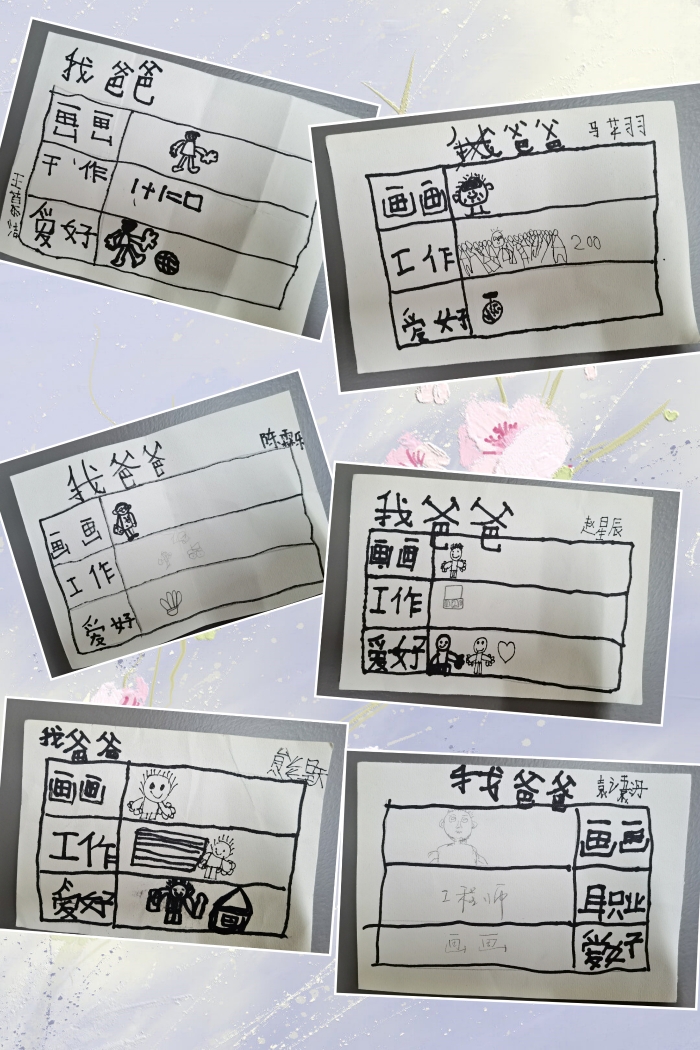 我爸爸
画画
工作
1+1=口
爱好
我爸爸
画画
工作
200
爱好
我爸爸
陈霖乐
画画
工作
爱好
我爸爸
赵星辰
画画
工作
爱好
我爸爸
画画
工作
爱好
我爸爸
画画
工程师
职业
画画
爱好